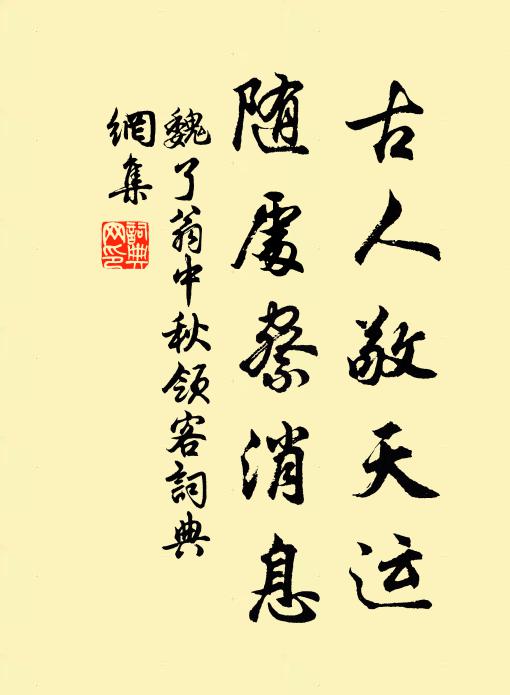 古人敬天运
随处察消息
魏了翁中秋领客詞典
網集
詞典
网印